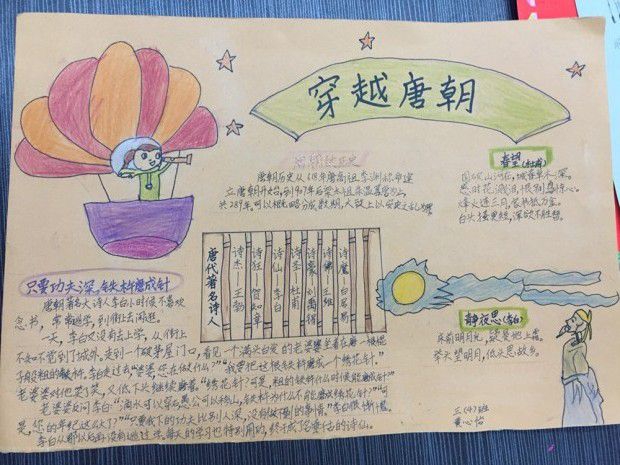 穿越唐朝
唐朝的历史
唐朝历史从618年唐高祖李渊称帝建
立唐朝开始,到907年后梁太祖朱温篡唐为止,
共289年。可以粗略分成数期,大致上以安史之乱为界
春望(杜甫)
国破山河在,城春草木深。
感时花溅泪,恨别鸟惊心。
烽火连三月,家书抵万金。
白头搔更短,浑欲不胜簪。
唐代著名诗人
诗杰 王勃
诗狂 贺知章
诗仙 李白
诗圣 杜甫
诗豪 刘禹锡
诗佛 王维
诗魔 白居易
静夜思(李白)
床前明月光,疑是地上霜。
举头望明月,低头思故乡。
只要功夫深,铁杵磨成针
唐朝著名大诗人李白小时候不喜欢
念书,常常逃学,到街上去闲逛。
一天,李白又没有去上学,从街上
不知不觉到了城外。走到一个破茅屋门口,看见一个满头白发的老婆婆坐着在磨一根棍
子般粗的铁杵。李白走过去"婆婆,您在做什么?""我要把这根铁杵磨成一个绣花针"。
老婆婆对他笑了笑,又低下头继续磨着。"绣花针?可是,粗的铁杵什么时候能磨成针?"
老婆婆反问李白:"滴水可以穿石,愚公可以移山,铁杵为什么不能磨成绣花针?""可
是,您的年纪这么大了?""只要我下的功夫比别人深,没有做不到的事情。"李白很惭愧
李白从那以后再没有逃过学,每天的学习也特别用功,终于成了伦垂千古的诗仙。
三(4)班
黄心怡